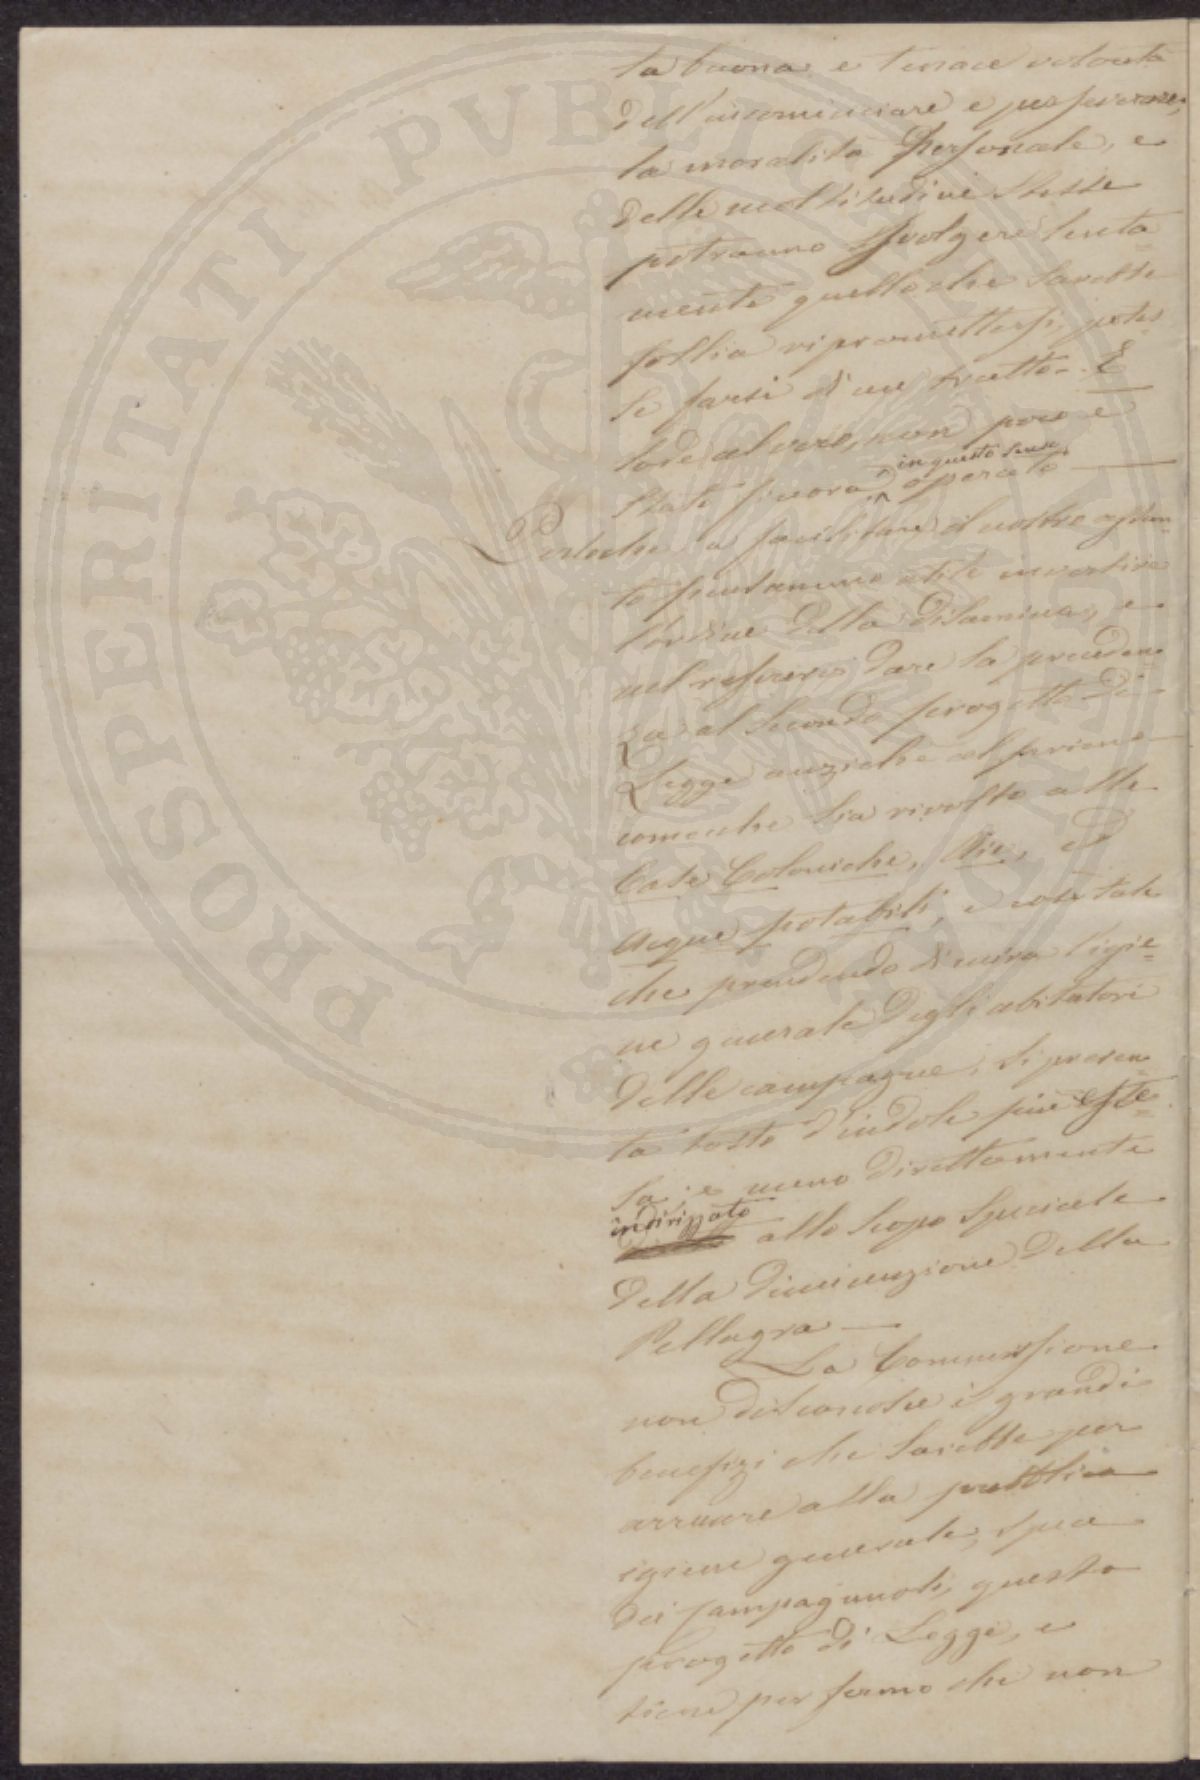 la buona e tenace volontà
dell'incominciare e perseverare,
la moralità personale, e
delle moltitudini stesse
potranno svolgere lenta
mente quello che sarebbe
follia ripromettersi, potes
se farsi di un tratto. E
lode al vero, non poco è
stato finora in questo senso operato
Postoche a facilitare il nostro assun
to pensammo utile invertire
l'ordine della disamina, e
nel riferire dare la preceden
za al secondo progetto di
Legge anzichè al primo
comecche sia rivolto alle
Case Coloniche, Aie, ed
Acque potabili, e come tale
che prendendo di mira l'igie=
ne generale degli abitatori
delle campagne, si presen
ta tosto d'indole più este=
sa; e meno direttamente
indirizzato allo scopo speciale
della diminuzione della
Pellagra
La Commissione
non disconosce i grandi
benefizi che sarebbe per
arrecare alla pubblica
igiene generale, spec
dei campagnuoli, questo
progetto di Legge, e
tiene per fermo che non
PROSPERITATI PVBLICAE